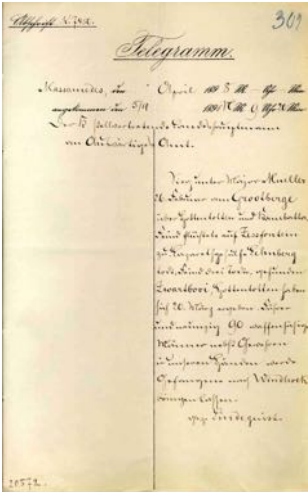 Abschrift
301
Telegramm.
Mossamedes, den April 1898 Uhr Min
angekommen den 5/4 1898 9 Uhr Min
Der K. stellvertretende Landeshauptmann
an Auswärtiges Amt.
Sieg unter Major Mueller
26. Februar am Grootberge
über Hottentotten und
Feind flüchtete auf Zessfontein
todt, Feind drei todte, gefunden
Zwartbooi, Hottentotten haben
sich 20. März ergeben. Führer
und 90 waffenfähige
Männer nebst Gewehren
in unseren Händen werde
Gefangene nach Windhoek
bringen lassen.
gez. Lindequist.
20572.